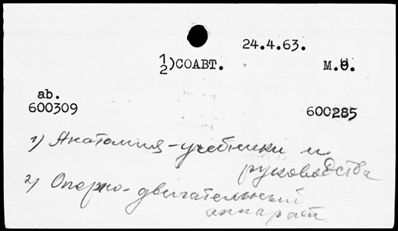 24.4.63.
1/2)СОАВТ. М.О.
ab.
600309 600285
1) Анатомия-учебники и
руководства
2) Опорно-двигательный
аппарат